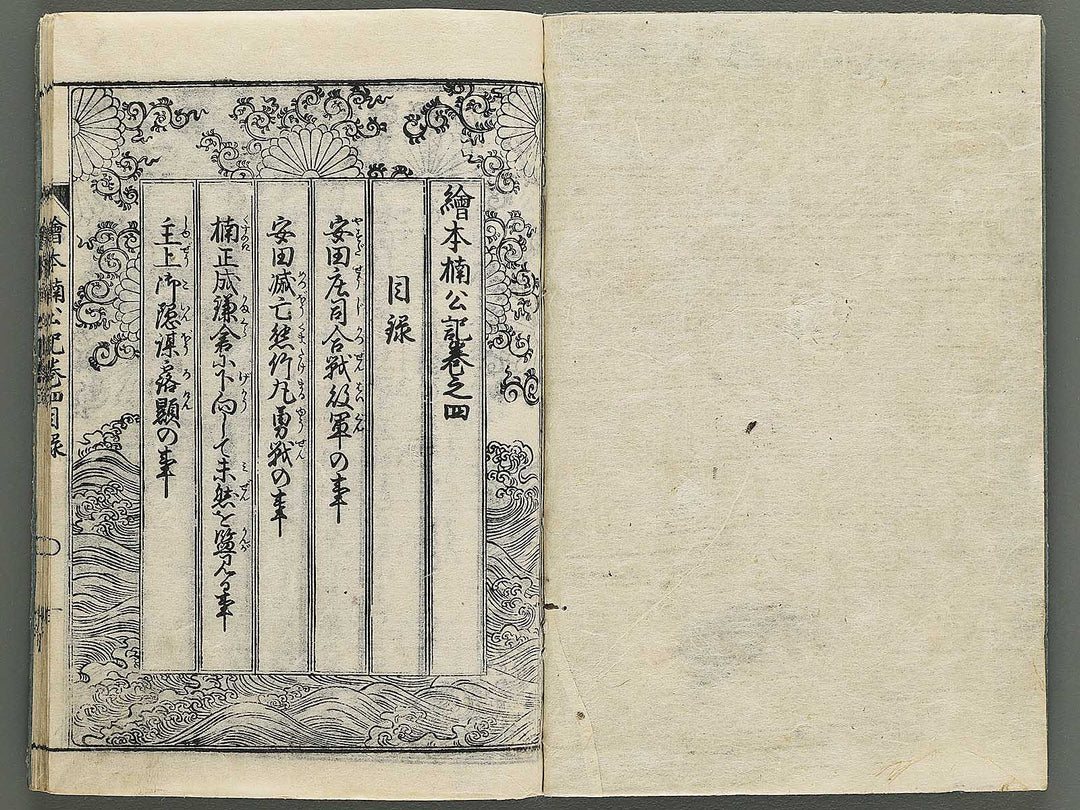 繪本楠公記巻之四
目録
安田庄司合戦敗軍の事
安田滅亡熊竹丸勇戦の事
楠正成鎌倉に下向して未然を鑒見る事
主上御隠謀露顕の事
繪本楠公記巻四目録